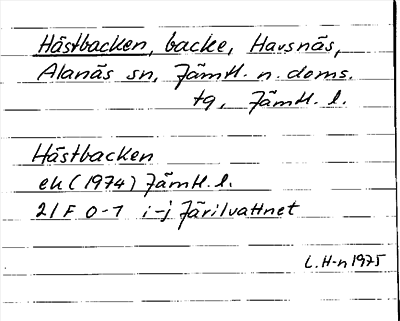 Hästbacken, backe, Havsnäs,
Alanäs sn, Jämtl. n. doms.
tg, Jämtl. l.
Hästbacken
ek (1974) Jämtl. l.
21F 0-1 i-j Järilvattnet
L. H-n 1975